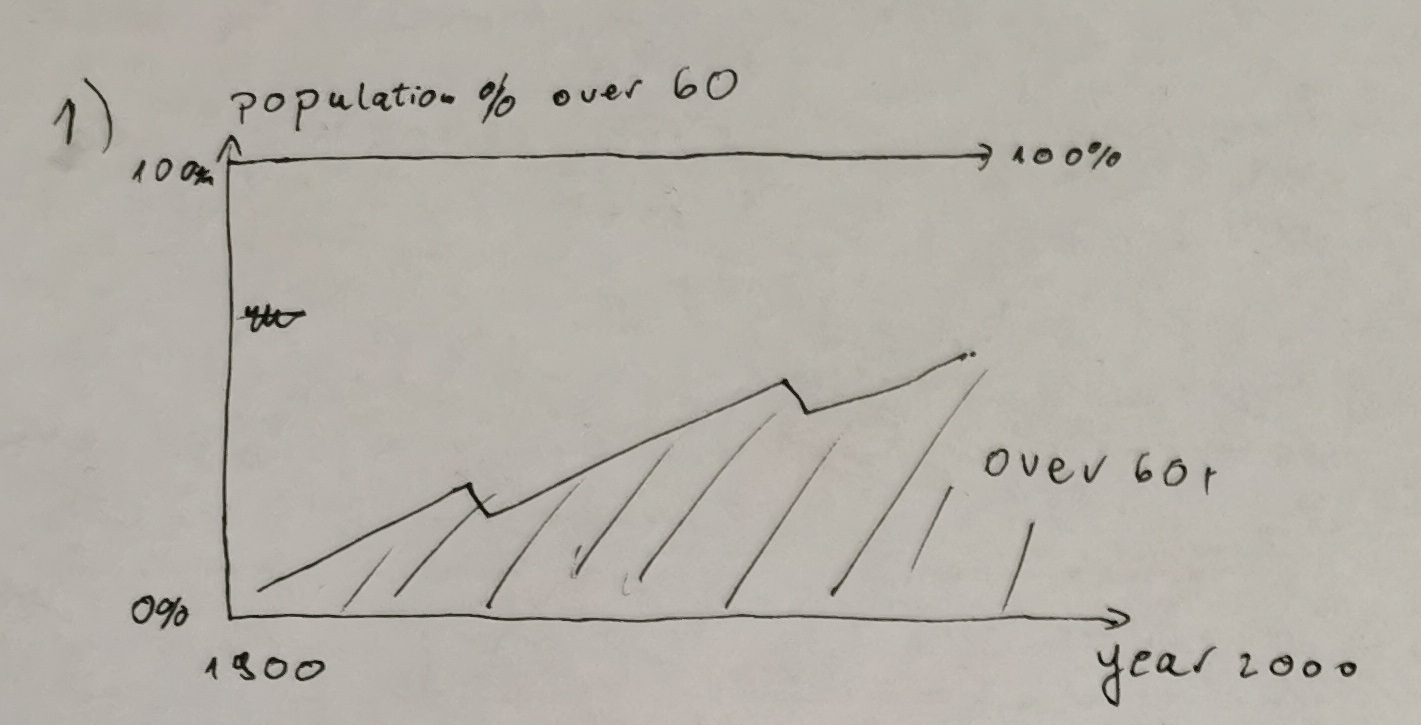 1)
population % over 60
100%
100%
over 60+
0%
1900
year 2000